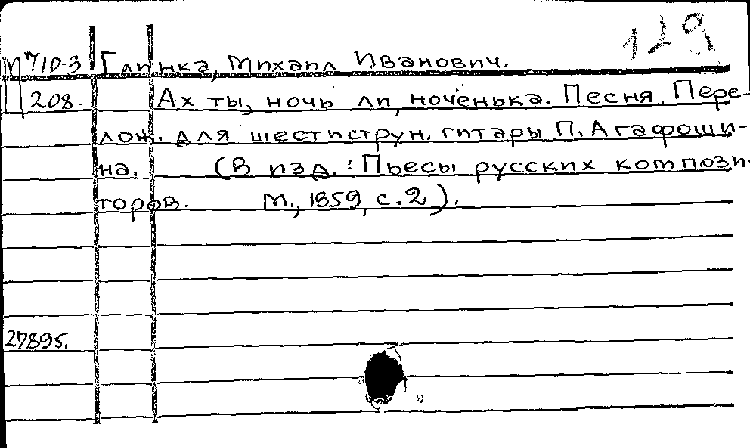 129
М710-3 Глинка, Михаил Иванович.
П 208. Ах ты, ночь ли, ноченька. Песня. Пере-
лож. для шестиструн. гитары П. Агафоши-
на. (В изд.: Пьесы русских компози-
торов. М., 1859, с. 2).
27895.